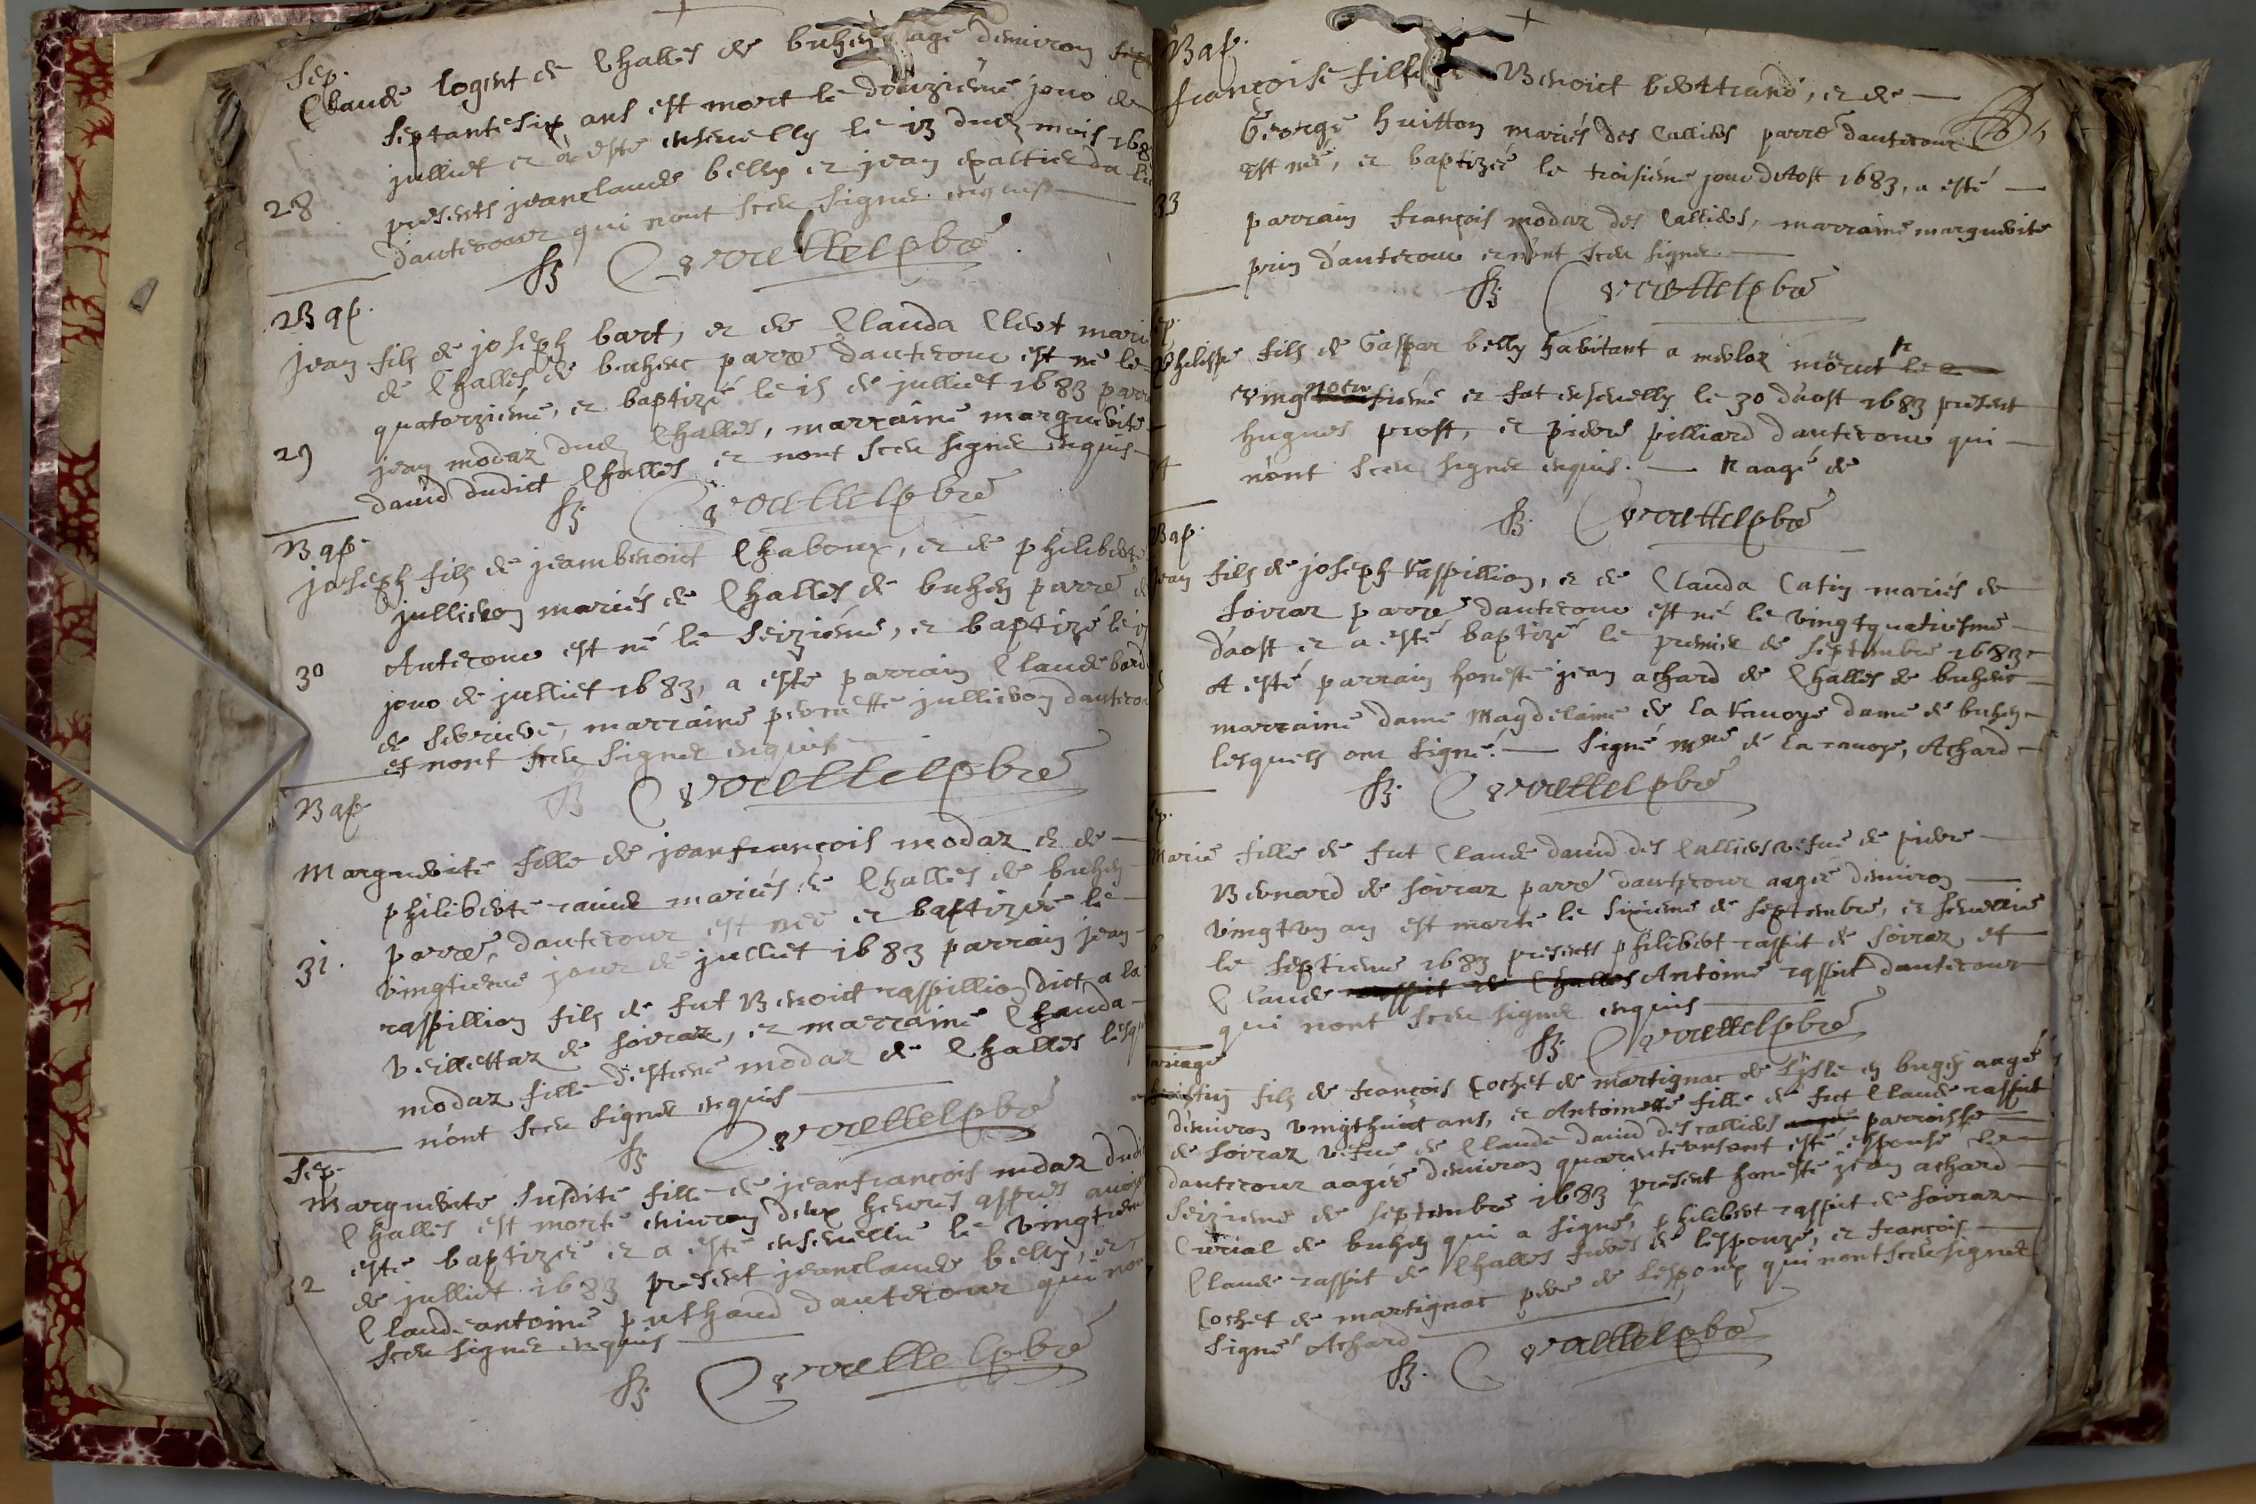 Sep.
Claude logent de Challes de buhen agé denviron
septantesix ans est mort le douziéme jour de
julliet et a esté ensevelly le 13 dud mois 168
28
presents jeanclaude belly et jean
dautecour qui nont sceu signer enquis
Bap.
jean fils de joseph bart, et de Clauda Clert mari
de Challes de buhenc parre dautecour est né le
quatorziéme, et baptizé le 15 de julliet 1683 parr
29
jean modaz dud Challes, marraine marguerite
david dudict Challes et nont sceu signer enquis
Bap.
joseph fils de jeanbenoict Chaboux, et de philiberte
jullieron mariés de Challes de buhen parre d
Antecour est né le seiziéme, et baptizé le
30
jour de julliet 1683, a esté parrain Claude
de , marraine pernette jullieron dautecou
et nont sceu signer enquis
Bap
Marguerite fille de jeanfrançois modaz et de
philiberte ravier mariés de Challes de buhen
parre, dautecour est née et baptizée le
31.
vingtieme jour de julliet 1683 parrain jean
raspillion fils de fut Benoict raspillion dict a la
veillettaz de soiraz, et marraine Clauda
modaz fille destiene modaz de Challes lesq
n'ont sceu signer enquis
Sep.
Marguerite susdite fille de jeanfrançois modaz dudi
Challes est morte environ deux heures appres avoi
esté baptizée et a esté ensevellie le vingtiem
32
de julliet 1683 present jeanclaude belly, et
Claudeantoine puthaud dautecour qui non
sceu signer enquis
Bap.
françoise fille de Benoict bertrand, et de
George huitton mariés des Calliers parre dautecour
est née, et baptizée le troisiéme jour daost 1683, a esté
33
parrain françois modaz des Calliers, marraine marguerite
prin d'autecour et n'ont sceu signer
ep.
Philippe fils de Gaspar belly habitant a morut
ving neuviéme et fut ensevelly le 30 d'aost 1683 present
hugues prost, et pierre pilliard d'autecour qui
n'ont sceu signer enquis. aagé de
Bap
jean fils de joseph Raspillion, et de Clauda Catin mariés de
soiraz parre dautecour est né le vingtquatriesme
d'aost et a esté baptizé le premier de septembre 1683
A esté parrain honeste jean achard de Challes de buhenc
marraine dame Magdelaine de la Ravoye dame de buhen
lesquels ont signé. Signé Mne de la ravoye, Achard
ep.
Marie fille de fut Claude david des Calliers vefue de pierre
Bernard de soiraz parre dautecour aagée denviron
vingtun an est morte le sixieme de septembre, et
le septieme 1683 presents philibert raspit de soiraz et
Claude Antoine raspit dautecour
qui nont sceu signer enquis
ariage
fils de françois Cochet de martignac de L'isle en bugey aagé
d'environ vingthuict ans, et Antoinette fille de fut Claude raspit
de soiraz vefue de Claude david des calliers parroisse
dautecour aagée denviron quarente ans ont esté espousé le
seizieme de septembre 1683 present honeste jean achard
Curial de buhen qui a signé, philibert raspit de soiraz
Claude raspit de Challes freres de l'espouze, et françois
Cochet de martignac pere de Lespoux qui nont sceu signer
Signé Achard